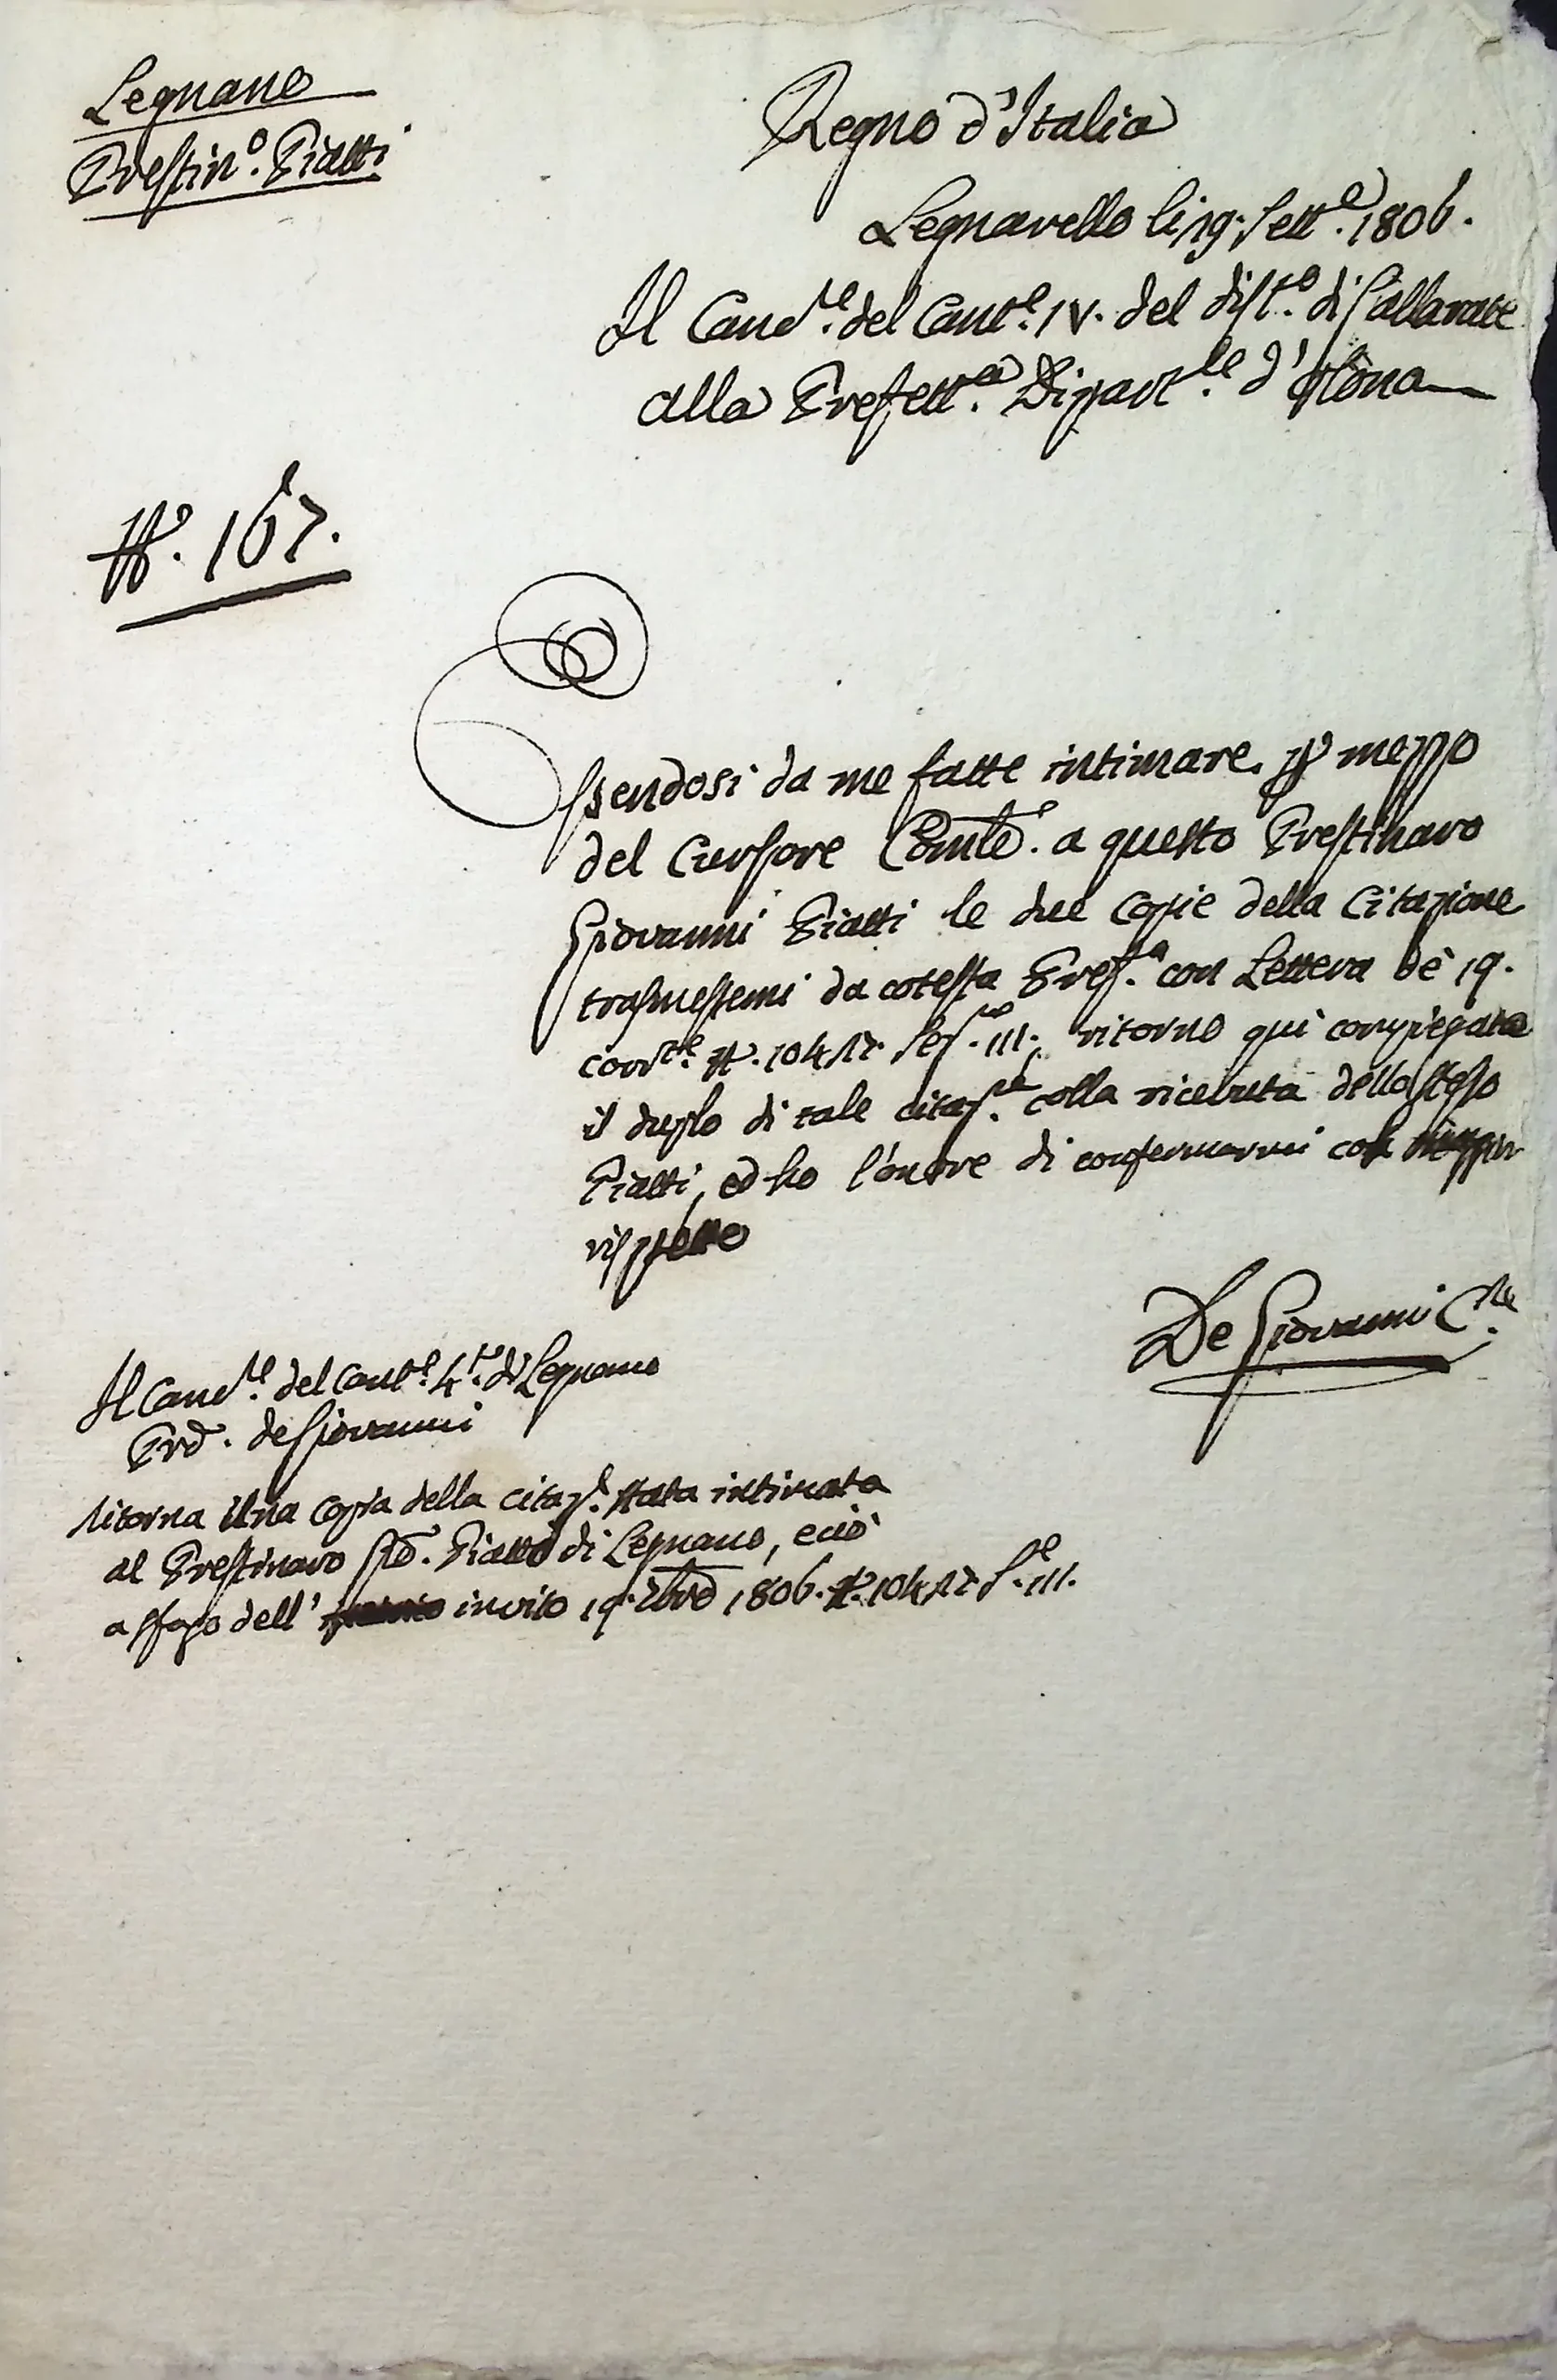 Legnano
Prestin.o Piatti
Regno d'Italia
Legnarello li 19. Sett.e 1806.
Il Canc.re del Cant.e IV. del dist.o di Gallarate
alla Prefett.a Dipart.le d'Olona
N.o 167.
Essendosi da me fatte intimare p mezzo
del Cursore Comle. a questo Prestinaro
Giovanni Piatti le due Copie della Citazione
trasmessemi da cotesta Pref.a con Lettera dè 19.
corr.te N. 10417. Sez.ne III., ritorno quì compiegata
il duplo di tale citaz.ne colla riceuta dello stesso
Piatti, ed ho l'onore di confermarmi con
rispetto
De Giovanni C.re
Il Canc.re del Cant.e 4.to di Legnano
Prd. de Giovanni
ritorna una copia della citaz.e stata intimata
al Prestinaro Gio. Piatti di Legnano, e ciò
a sfogo dell' invito 19. 7bre 1806. N. 10417. S.e III.